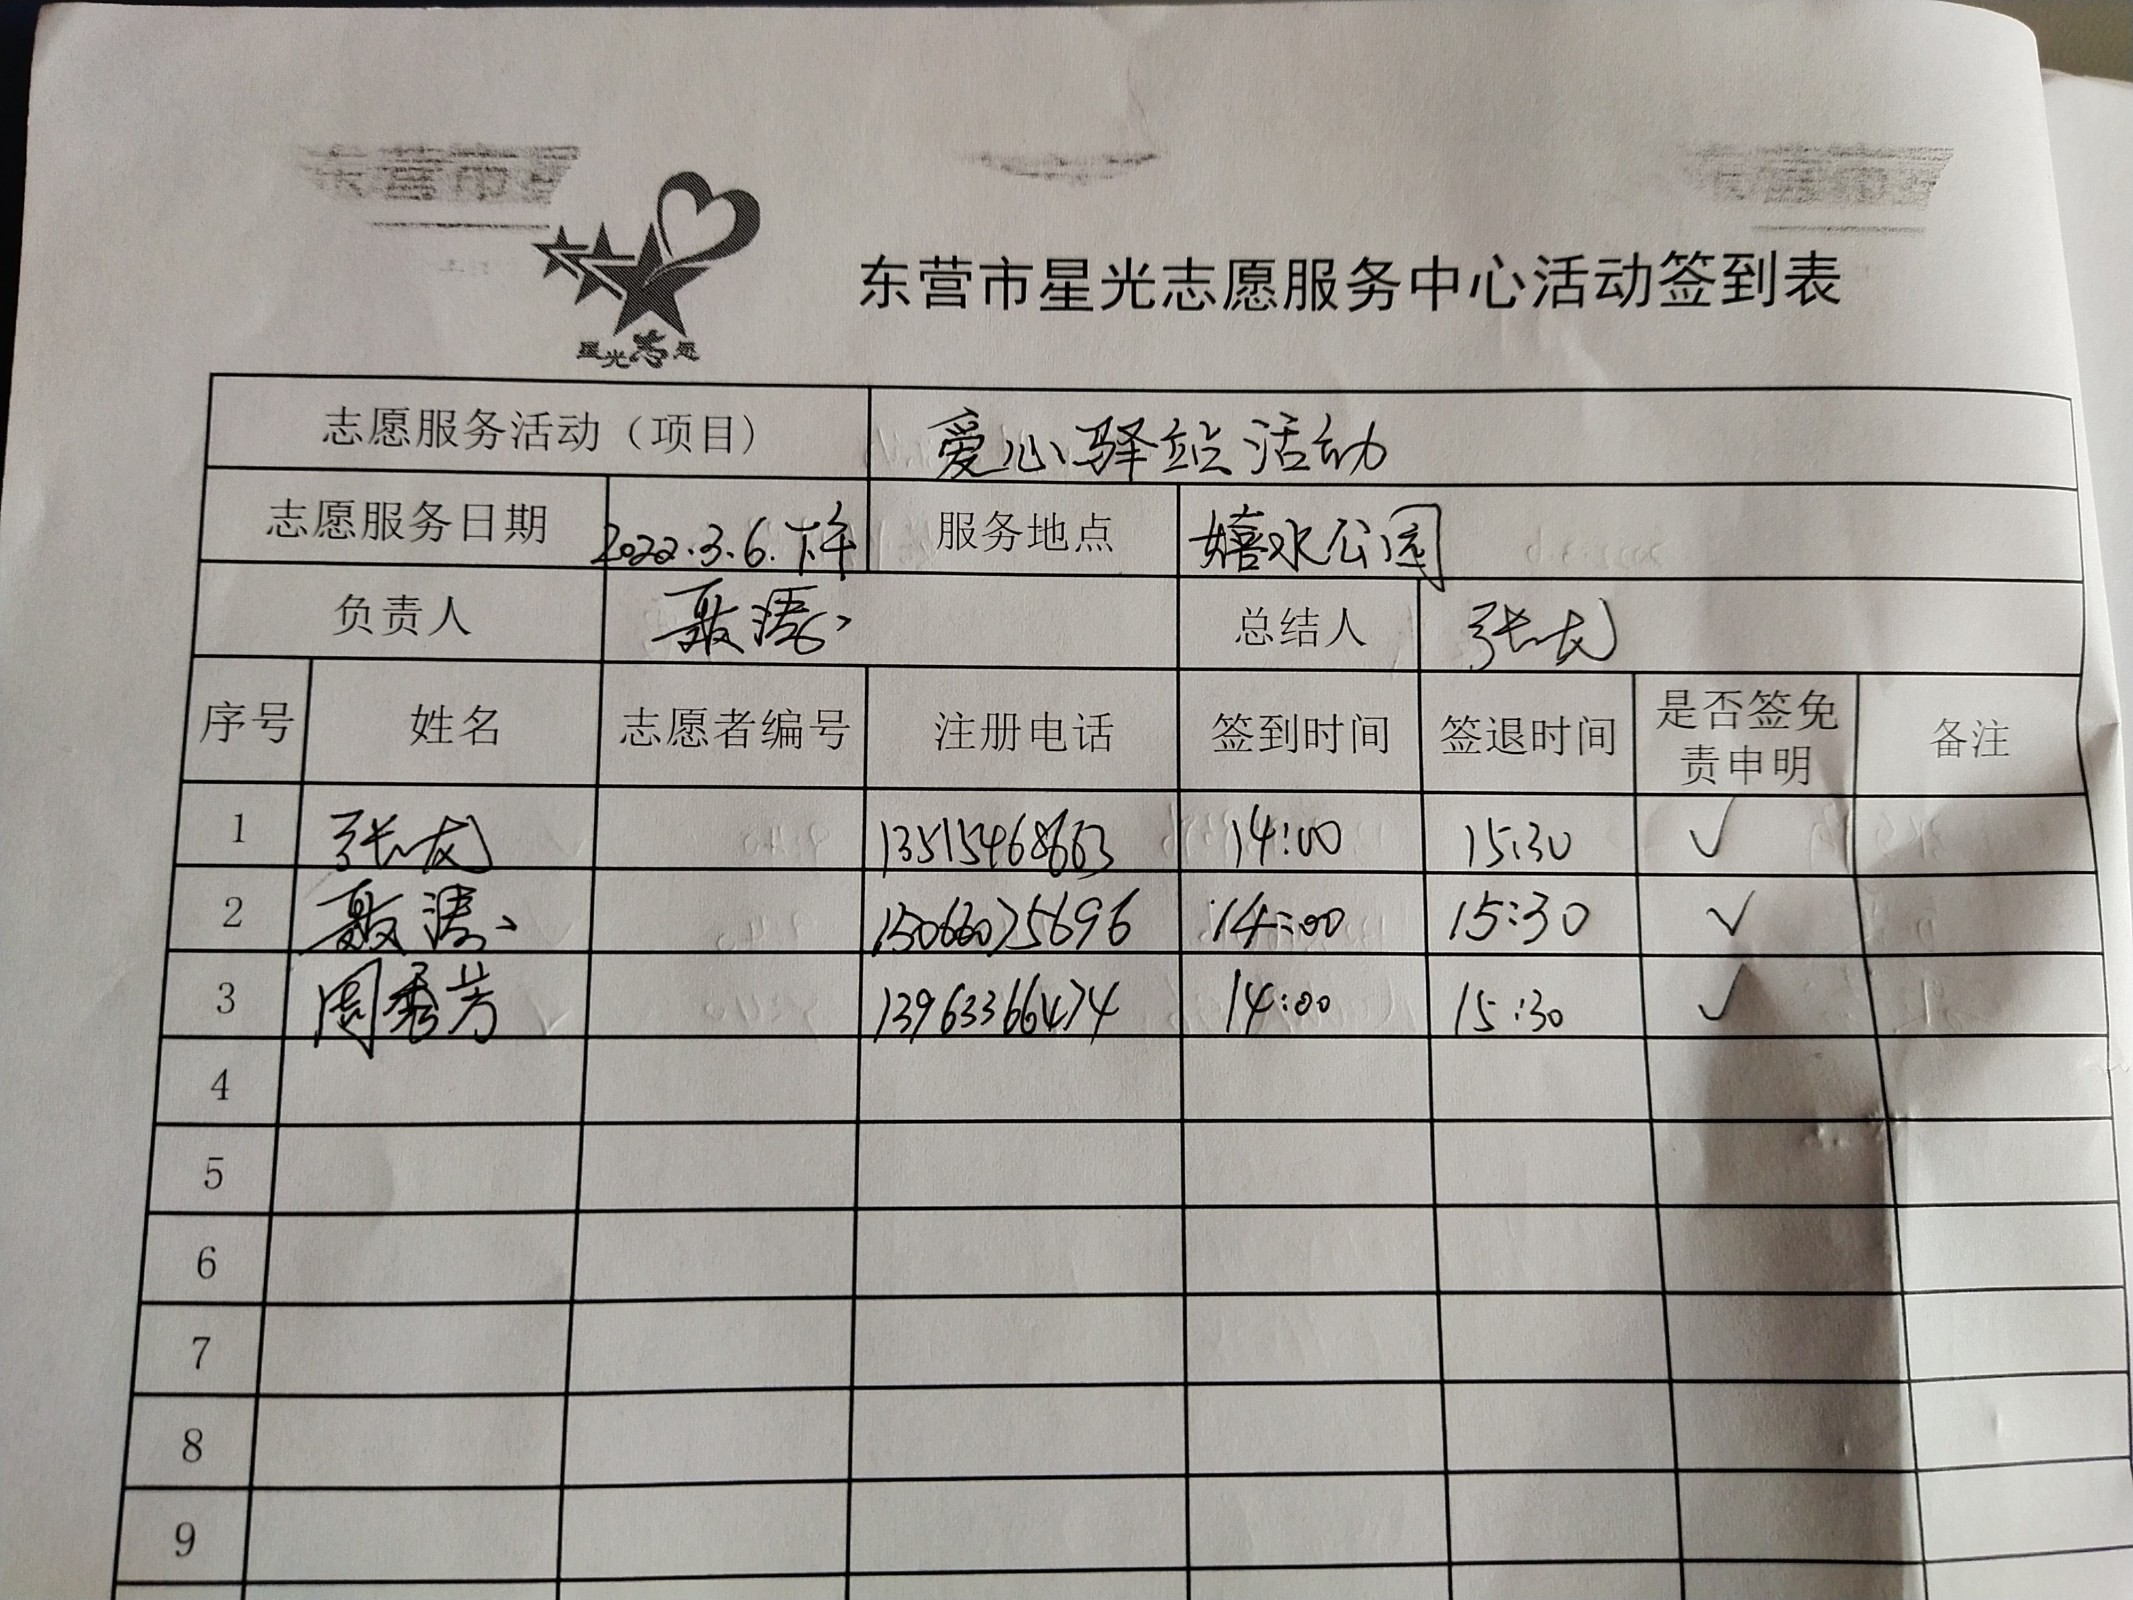 东营市星
星光志愿
东营市星光志愿服务中心活动签到表
志愿服务活动（项目） 爱心驿站活动
志愿服务日期 2022.3.6.下午 服务地点 嬉水公园
负责人 总结人 张龙
序号 姓名 志愿者编号 注册电话 签到时间 签退时间 是否签免责申明 备注
1 张龙 13515468663 14:00 15:30 ✓
2 14:00 15:30 ✓
3 周秀芳 13963366474 14:00 15:30 ✓
4
5
6
7
8
9